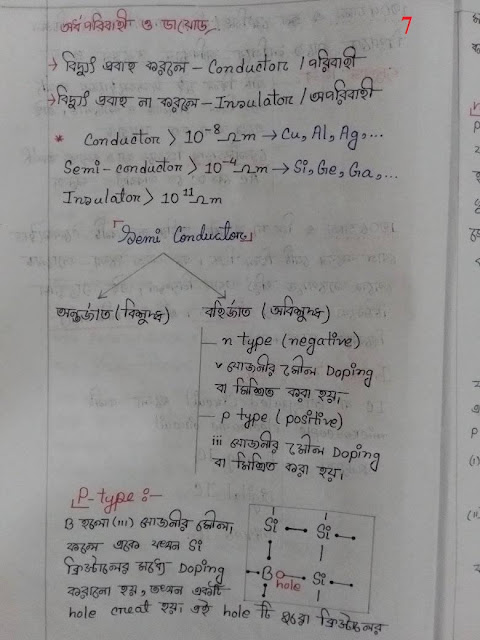 7
অর্ধপরিবাহী ও ডায়োড..
→ বিদ্যুৎ প্রবাহ করলে - Conductor / পরিবাহী
→ বিদ্যুৎ প্রবাহ না করলে - Insulator / অপরিবাহী
* Conductor > 10⁻⁸ Ωm → Cu, Al, Ag,...
Semi-conductor > 10⁻⁴ Ωm → Si, Ge, Ga,...
Insulator > 10¹¹ Ωm
「Semi Conductor」
অন্তর্জাত (বিশুদ্ধ) বহির্জাত (অবিশুদ্ধ)
n type (negative)
v যোজনীর মৌল Doping
বা মিশ্রিত করা হয়।
p type (positive)
iii যোজনীর মৌল Doping
বা মিশ্রিত করা হয়।
P-type :-
B হলো (iii) যোজনীর মৌল।
ফলে একে যখন Si
ক্রিস্টালের মধ্যে Doping
করানো হয়, তখন একটি
hole creat হয়। এই hole টি দ্বারা ক্রিস্টালের
Si Si
B hole Si